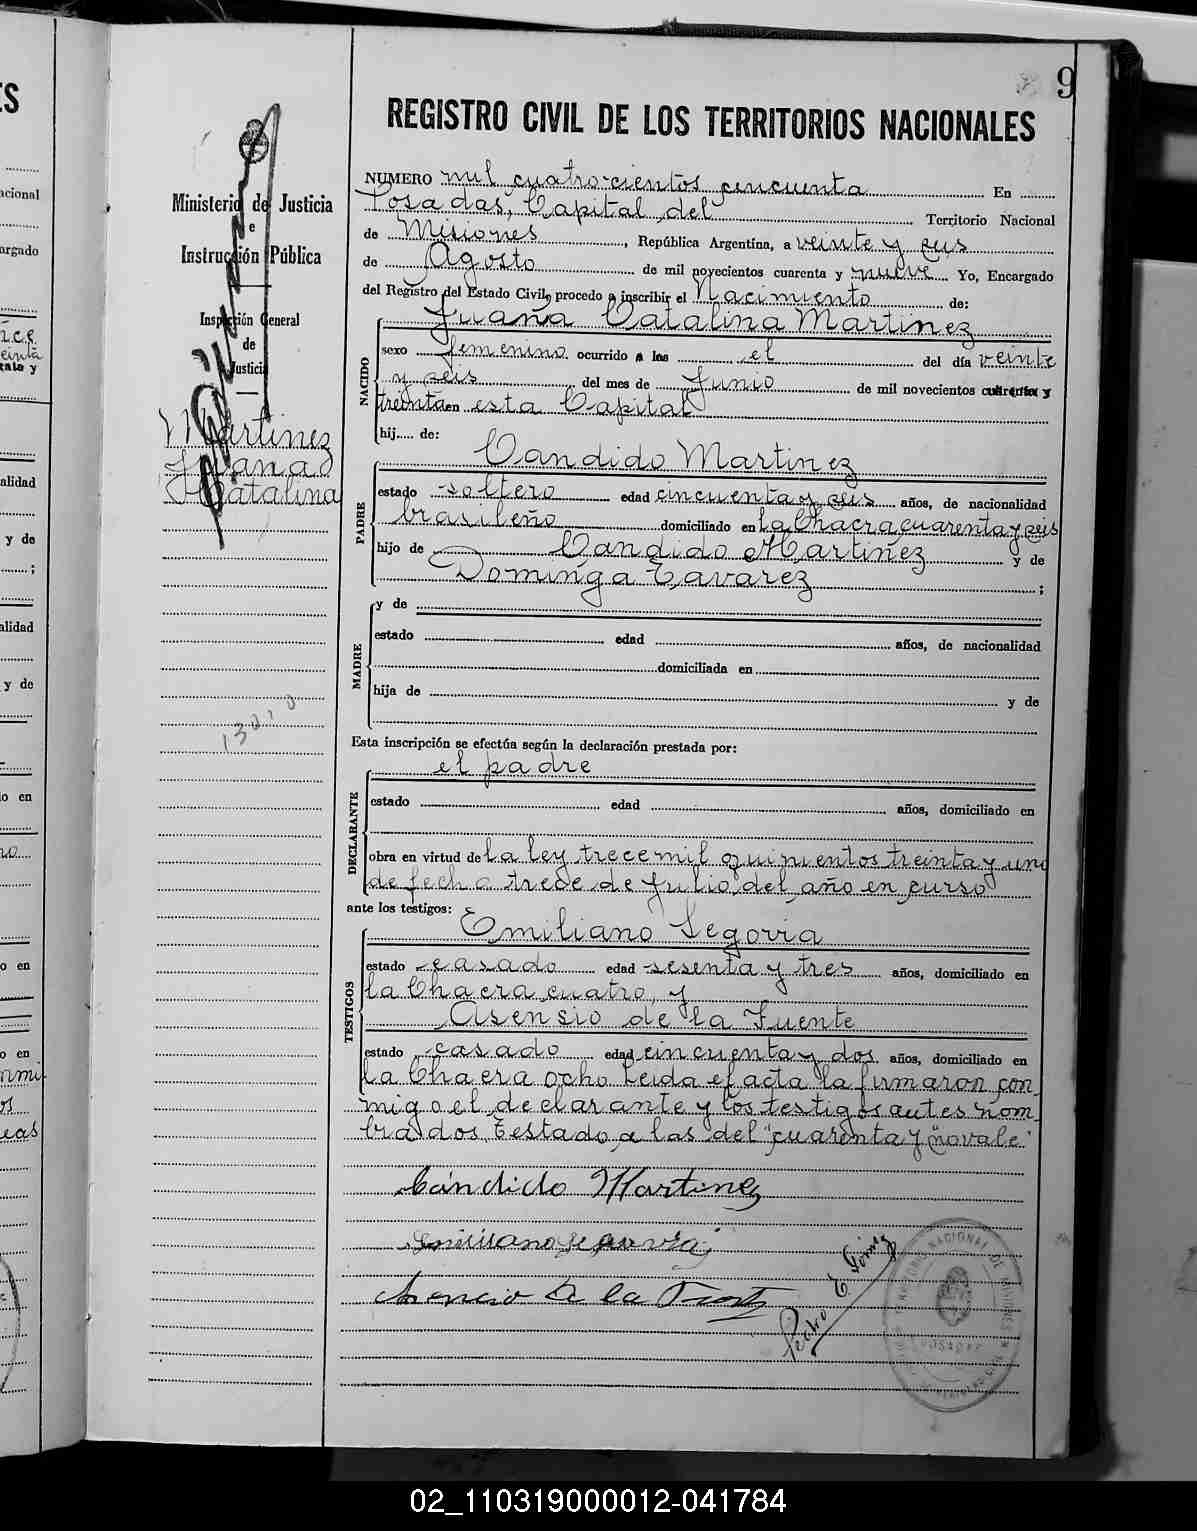 9
REGISTRO CIVIL DE LOS TERRITORIOS NACIONALES
Ministerio de Justicia
e
Instrucción Pública
Inspección General
de
Justicia
Martinez
Juana
Catalina
NUMERO mil cuatrocientos cincuenta En
Posadas, Capital del Territorio Nacional
de Misiones, República Argentina, a veinte y seis
de Agosto de mil novecientos cuarenta y nueve Yo, Encargado
del Registro del Estado Civil, procedo a inscribir el Nacimiento de:
NACIDO
Juana Catalina Martinez
sexo femenino ocurrido a las el del día veinte
y seis del mes de Junio de mil novecientos cuarenta y
treinta en esta Capital
hij..... de:
PADRE
Candido Martinez
estado soltero edad cincuenta y seis años, de nacionalidad
brasileño domiciliado en la Chacra cuarenta y seis
hijo de Candido Martinez y de
Dominga Tavarez ;
MADRE
y de
estado edad años, de nacionalidad
domiciliada en
hija de y de
Esta inscripción se efectúa según la declaración prestada por:
DECLARANTE
el padre
estado edad años, domiciliado en
obra en virtud de la ley trece mil quinientos treinta y uno
de fecha trece de Julio del año en curso
ante los testigos:
TESTIGOS
Emiliano Segovia
estado casado edad sesenta y tres años, domiciliado en
la Chacra cuatro, y
Asensio de la Fuente
estado casado edad cincuenta y dos años, domiciliado en
la Chacra ocho Leida el acta la firmaron con
migo el declarante y los testigos antes nom
brados. Testado, a las del "cuarenta y" no vale"
Cándido Martinez
Emiliano Segovia
Asencio De la Fuente
Pedro E Gómez
POSADAS
02_110319000012-041784